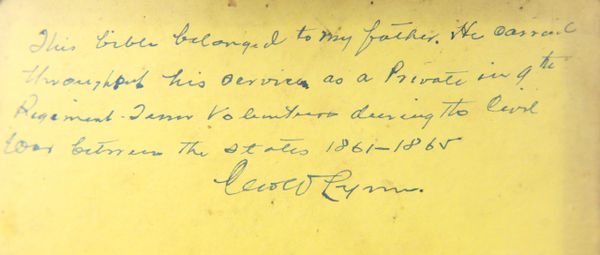 This bible belonged to my father. He carried
throughout his service as a Private in 9th
Regiment Tenn Volunteers during the Civil
War between the states 1861-1865
Lynn.